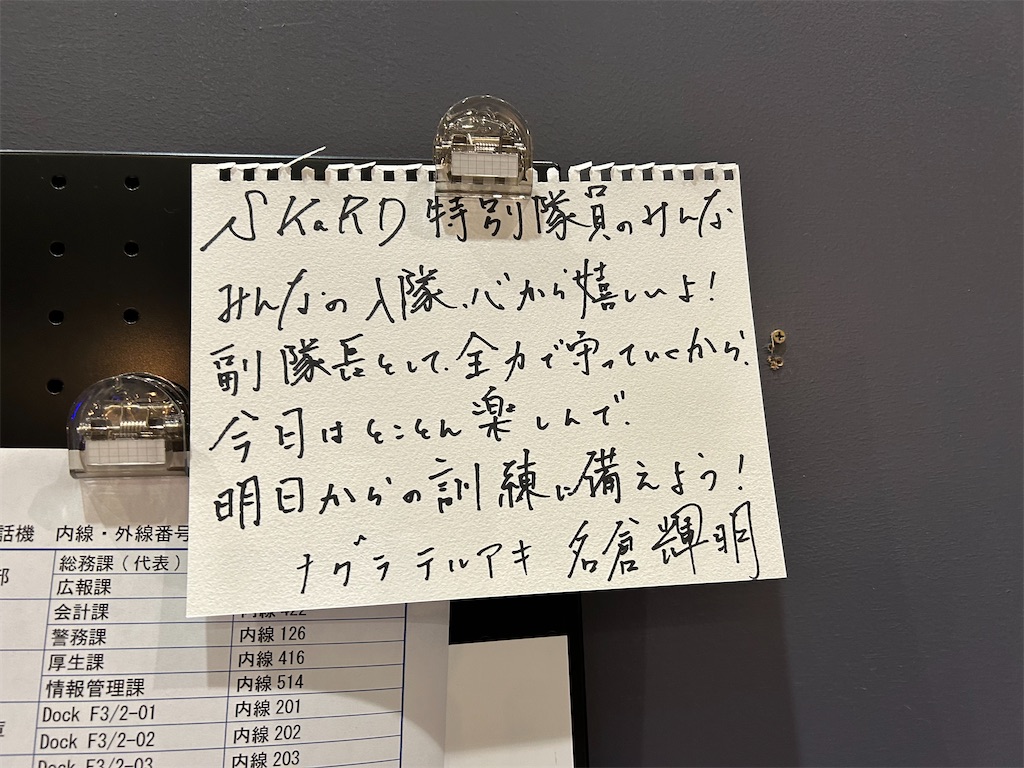 SKaRD 特別隊員のみんな
みんなの入隊、心から嬉しいよ!
副隊長として、全力で守っていくから、
今日はとことん楽しんで、
明日からの訓練に備えよう!
ナグラ テルアキ 名倉輝明
話機 内線・外線番号
部
総務課(代表)
広報課
会計課 内線 422
警務課 内線 126
厚生課 内線 416
情報管理課 内線 514
Dock F3/2-01 内線 201
Dock F3/2-02 内線 202
Dock F3/2-03 内線 203